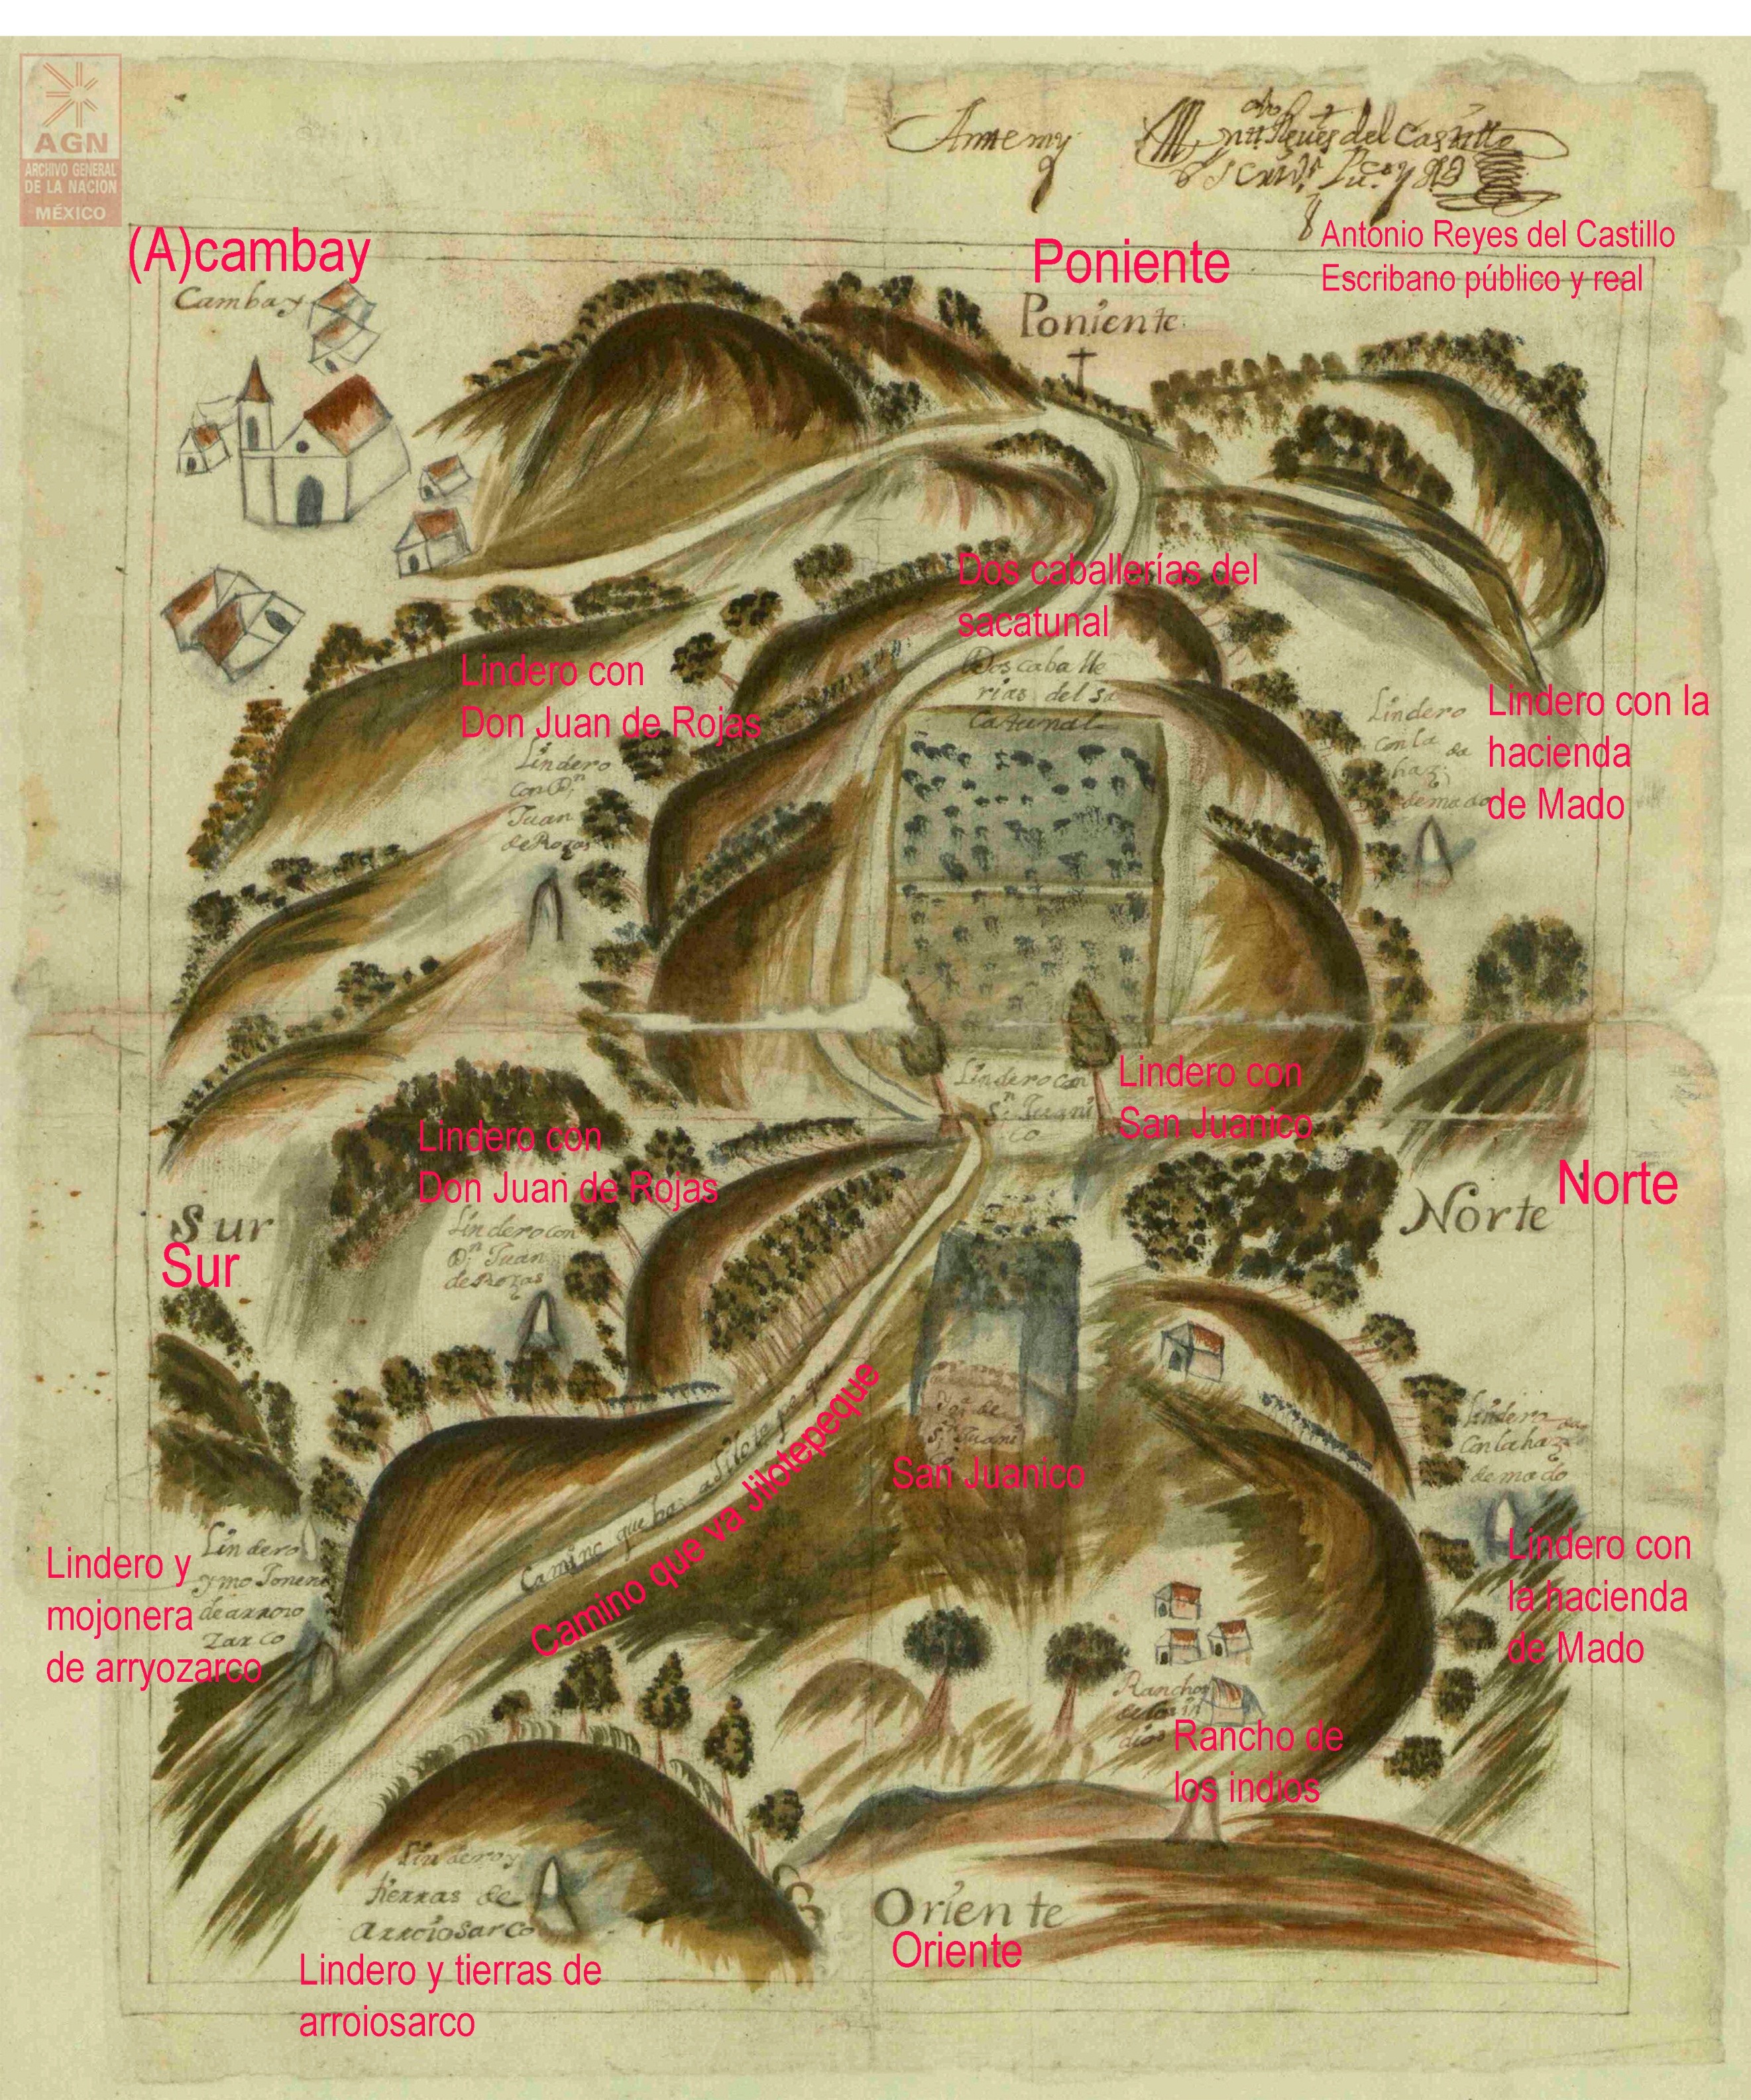 AGN
ARCHIVO GENERAL
DE LA NACION
MÉXICO
Reyes del Castillo
Antonio Reyes del Castillo
Escribano público y real
(A)cambay
Cambay
Poniente
Poniente
Dos caballerías del
sacatunal
Dos caballe
rias del sa
catunal
Lindero con
Don Juan de Rojas
Lindero
con Dn
Juan
de Rojas
Lindero con la
hacienda
de Mado
Lindero
con la
haz.da
de mado
Lindero con
San Juanico
Lindero con
Sn Juani
co
Lindero con
Don Juan de Rojas
Lindero con
Dn Juan
de Rozas
Norte
Norte
Sur
Sur
Camino que ba a Jilotepeque
Camino que va Jilotepeque
de
Sn Juani
San Juanico
Lindero
con la haz.da
de mado
Lindero con
la hacienda
de Mado
Lindero y
mojonera
de arryozarco
Lindero
y mo Jonera
de arroio
zarco
Ranchos
de los in
dios
Rancho de
los indios
Lindero y
tierras de
arroiosarco
Lindero y tierras de
arroiosarco
Oriente
Oriente